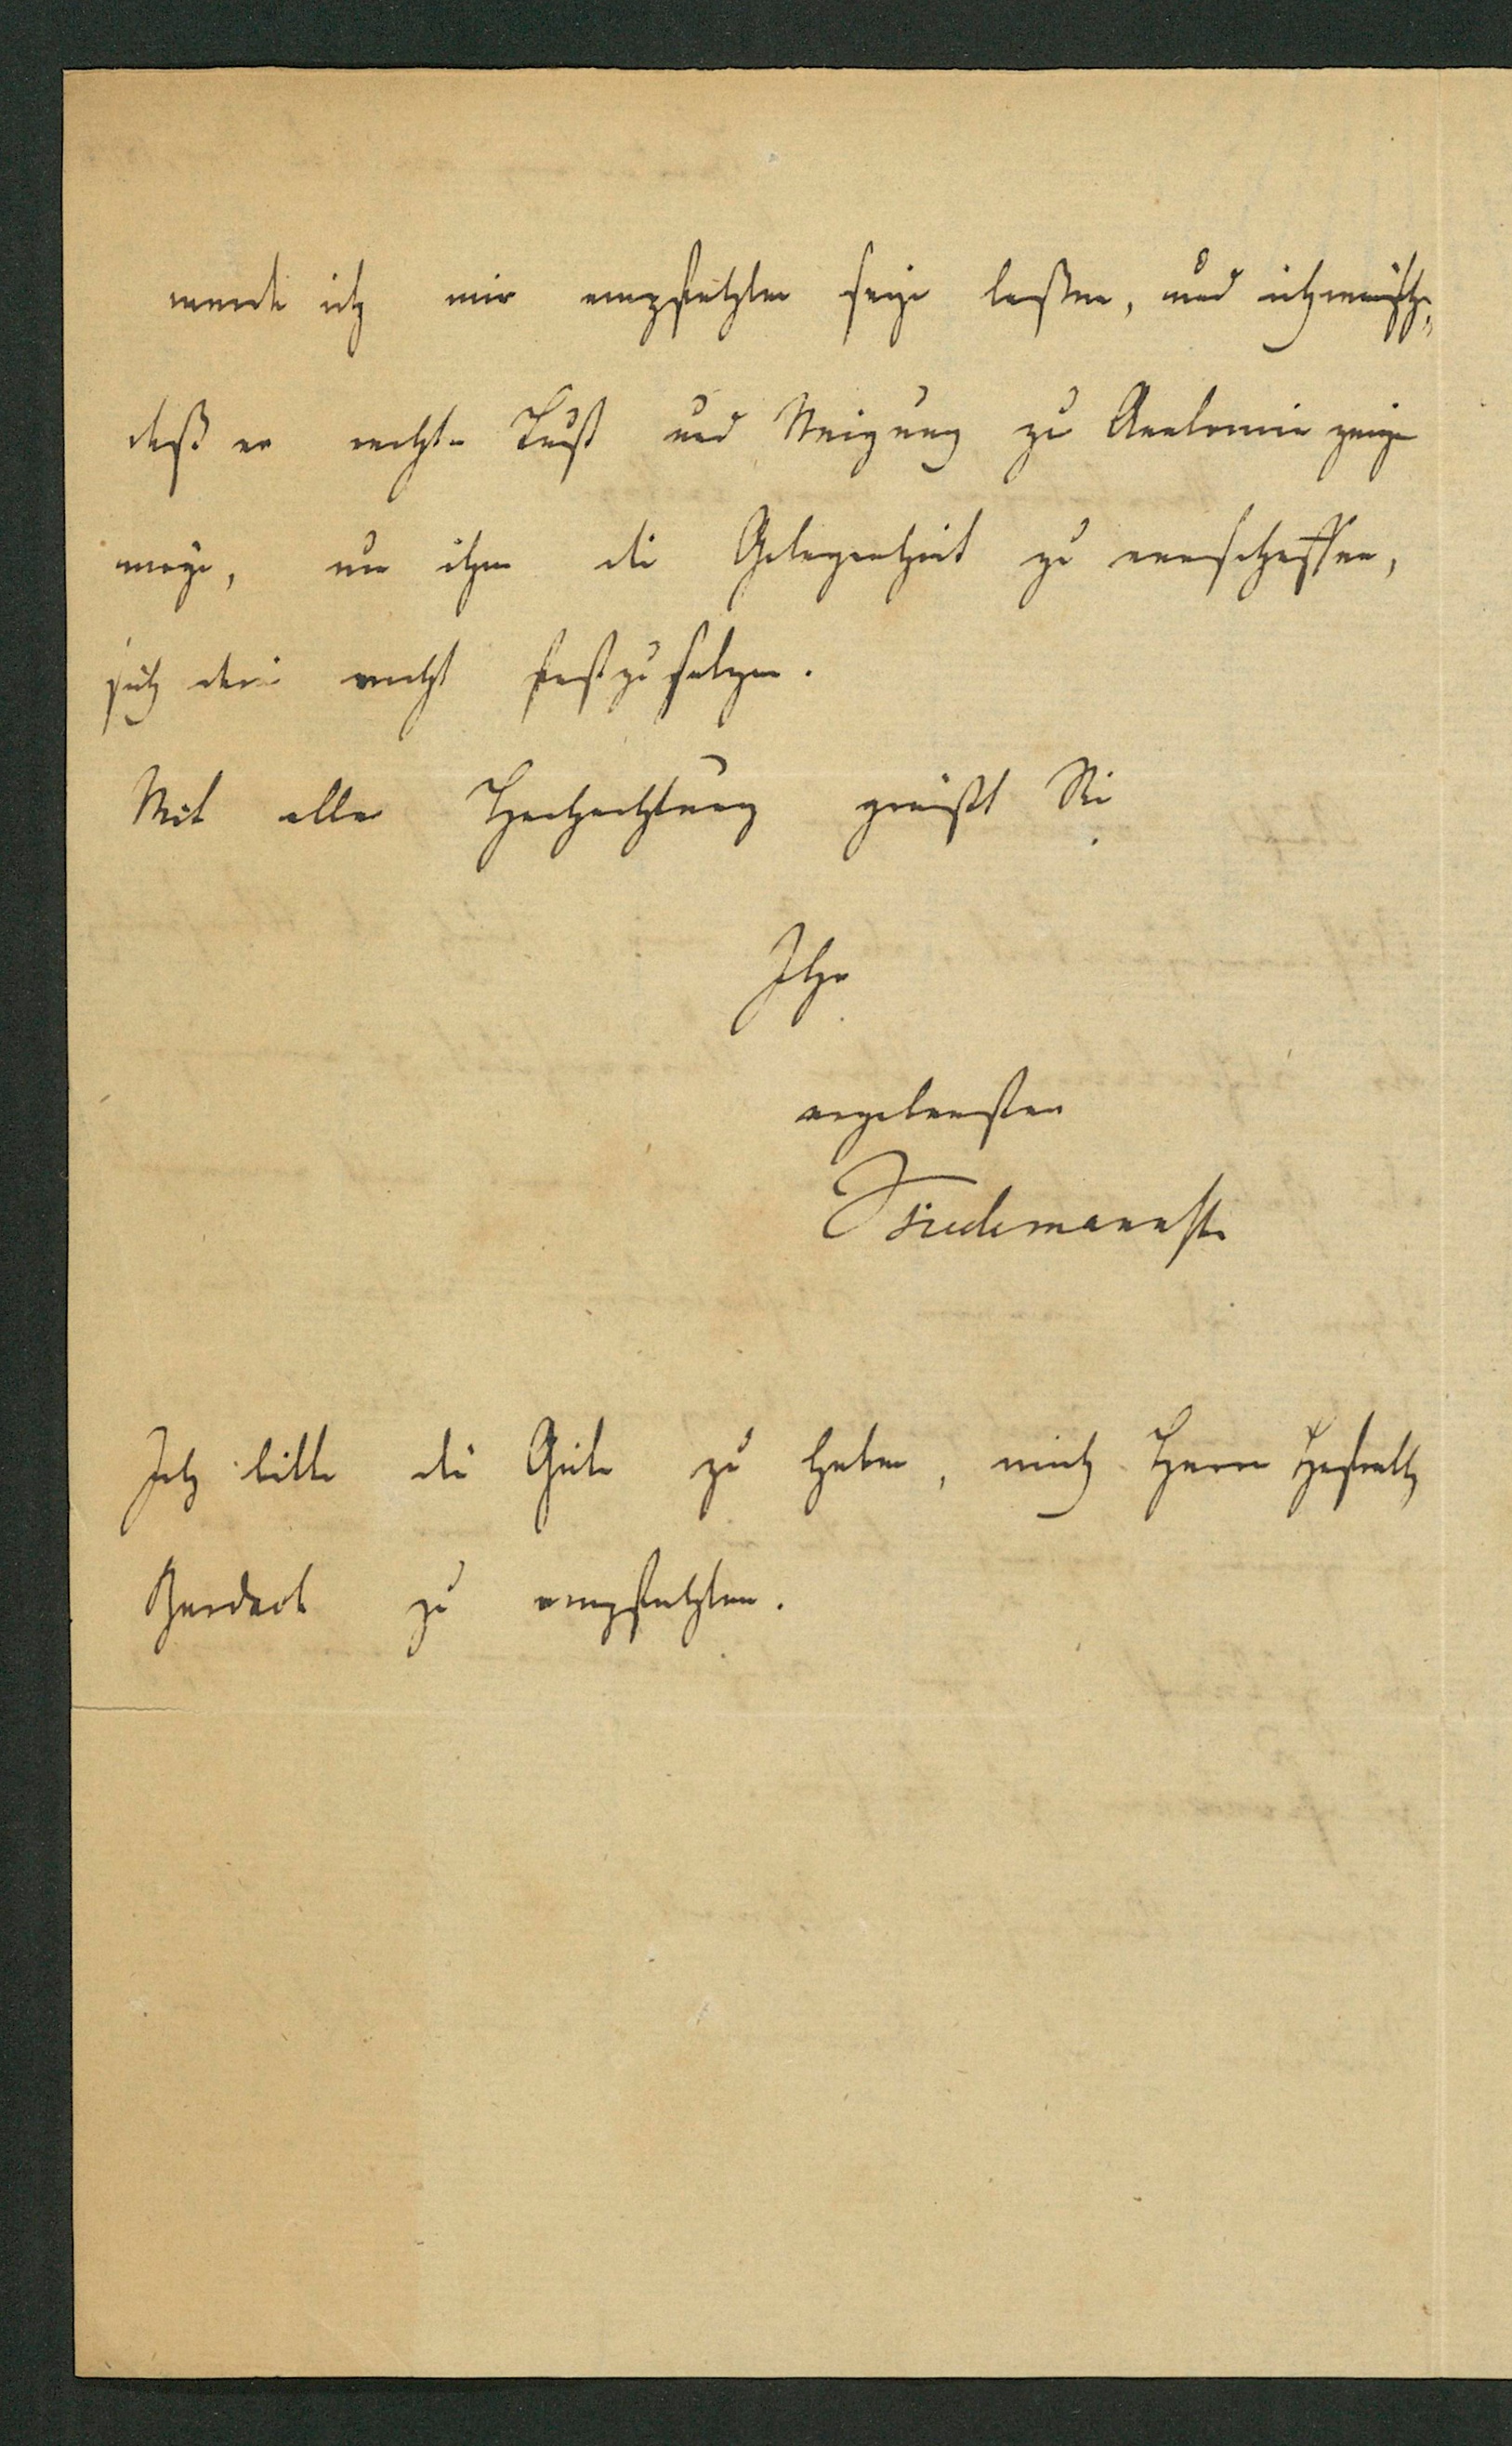 werde ich mir empfohlen seyn laßen, und ich wünsche,
daß er rechte Lust und Neigung zu Anatomie zeigen
möge, um ihm die Gelegenheit zu verschaffen,
sich darin recht festzusetzen.
Mit aller Hochachtung grüßt Sie
Ihr
ergebenster
Tiedemann
Ich bitte die Güte zu haben, mich Herrn Hofrath
Burdach zu empfehlen.